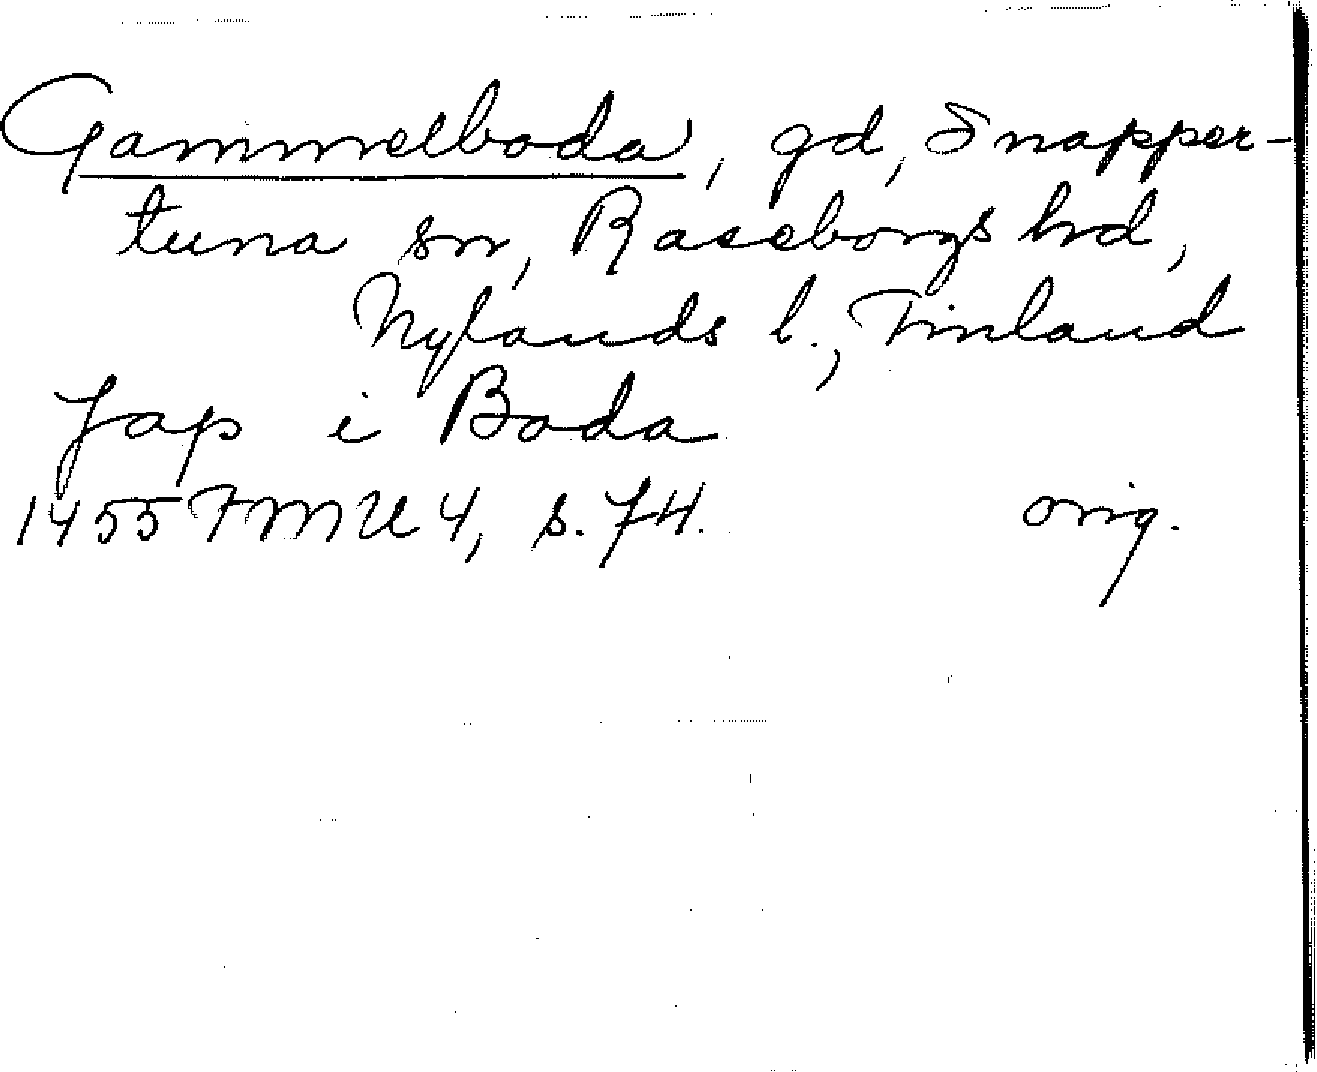 Gammelboda, gd, Snapper-
tuna sn, Raseborgs hrd,
Nylands l., Finland
Jap i Boda
1455 FMU 4, s. 74. orig.